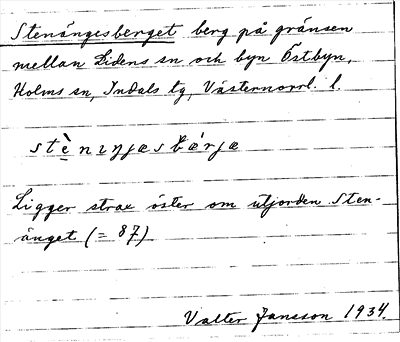 Stenängesberget berg på gränsen
mellan Lidens sn och byn Östbyn,
Holms sn, Indals tg, Västernorrl. l.
Ligger strax öster om utjorden Sten-
änget (= 87)
Valter Jansson 1934.